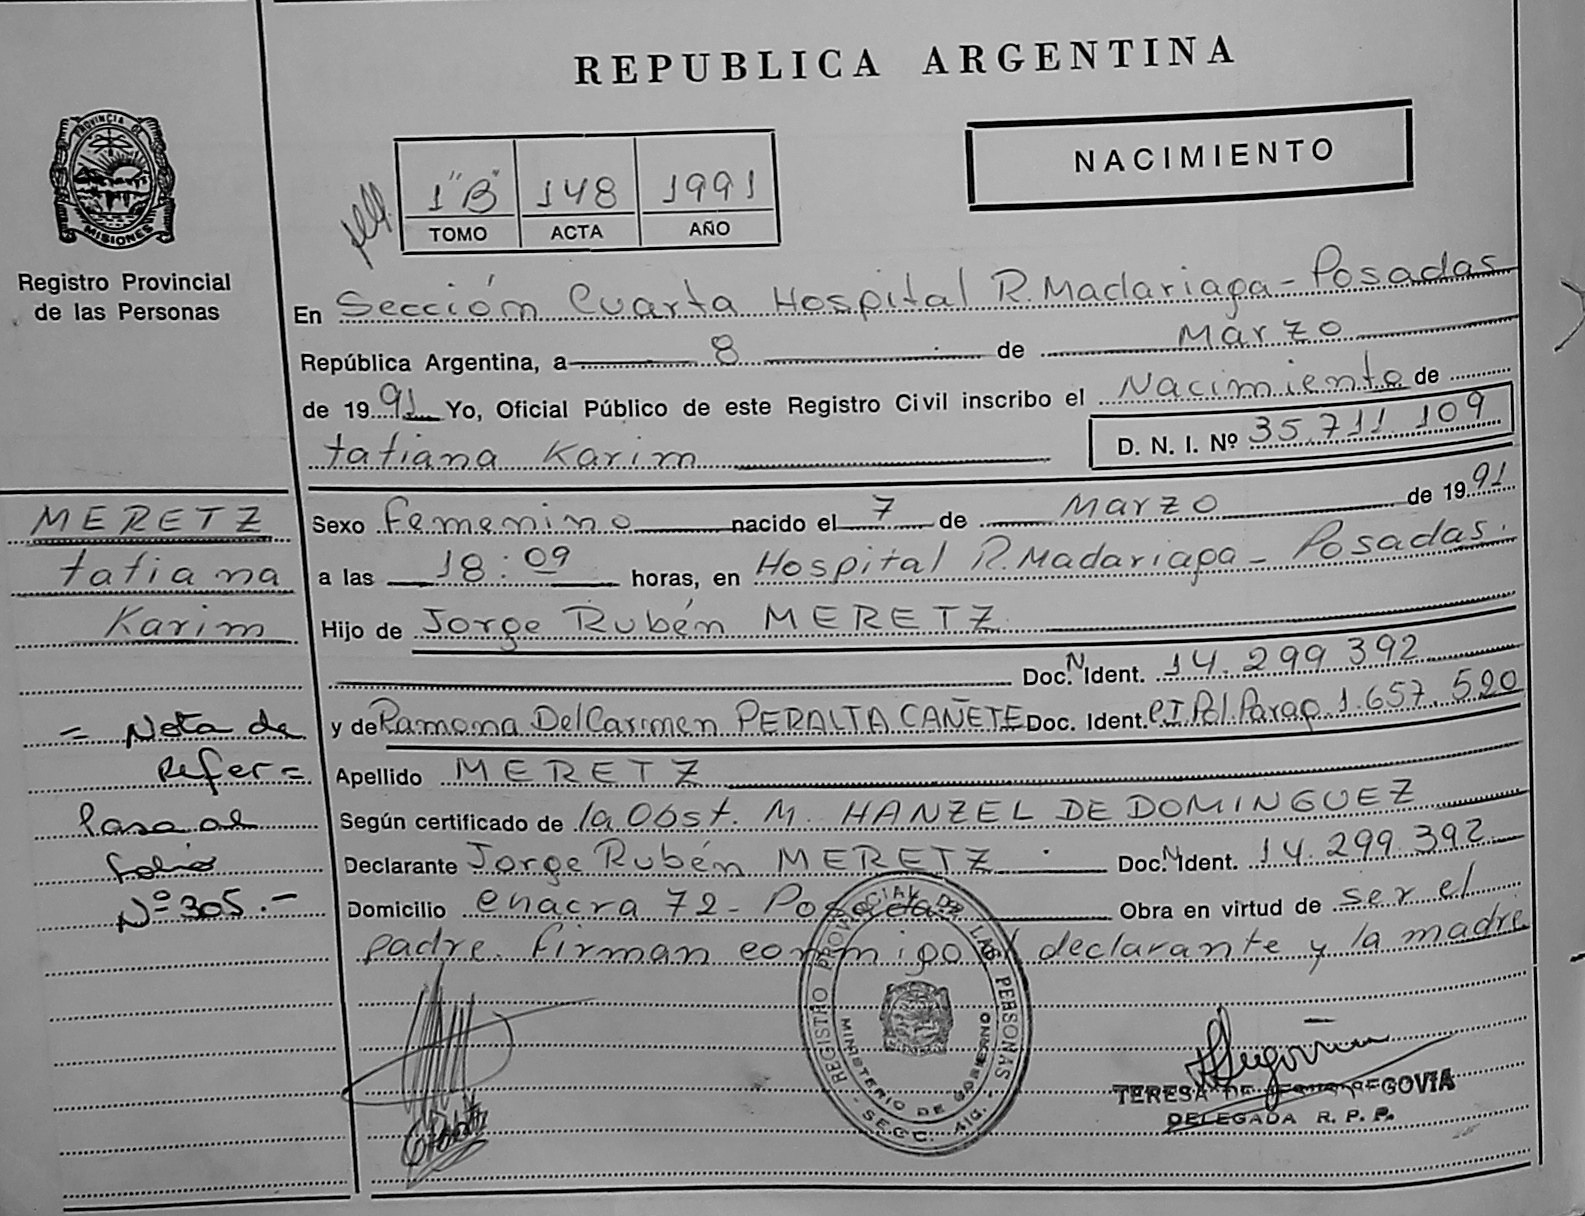 REPUBLICA ARGENTINA
NACIMIENTO
PROVINCIA DE
MISIONES
Registro Provincial
de las Personas
1"B" 148 1991
TOMO ACTA AÑO
En Sección Cuarta Hospital R. Madariaga - Posadas
República Argentina, a 8 de Marzo
de 1991 Yo, Oficial Público de este Registro Civil inscribo el Nacimiento de
tatiana Karim D. N. I. Nº 35.711.109
Sexo Femenino nacido el 7 de Marzo de 1991
a las 18:09 horas, en Hospital R. Madariaga - Posadas.
Hijo de Jorge Rubén MERETZ
Doc. N Ident. 14.299.392
y de Ramona Del Carmen PERALTA CAÑETE Doc. Ident. C.I. Pol. Parag. 1.657.520
Apellido MERETZ
Según certificado de la Obst. M. HANZEL DE DOMINGUEZ
Declarante Jorge Rubén MERETZ Doc. N Ident. 14.299.392
Domicilio Chacra 72 - Posadas Obra en virtud de ser el
padre. Firman conmigo el declarante y la madre
MERETZ
tatiana
Karim
= Nota de
Refer =
Pasa al
folio
Nº 305.-
REGISTRO PROVINCIAL DE LAS PERSONAS
MINISTERIO DE GOBIERNO
- SECC. 4ta. -
TERESA DE SEGOVIA
DELEGADA R. P. P.